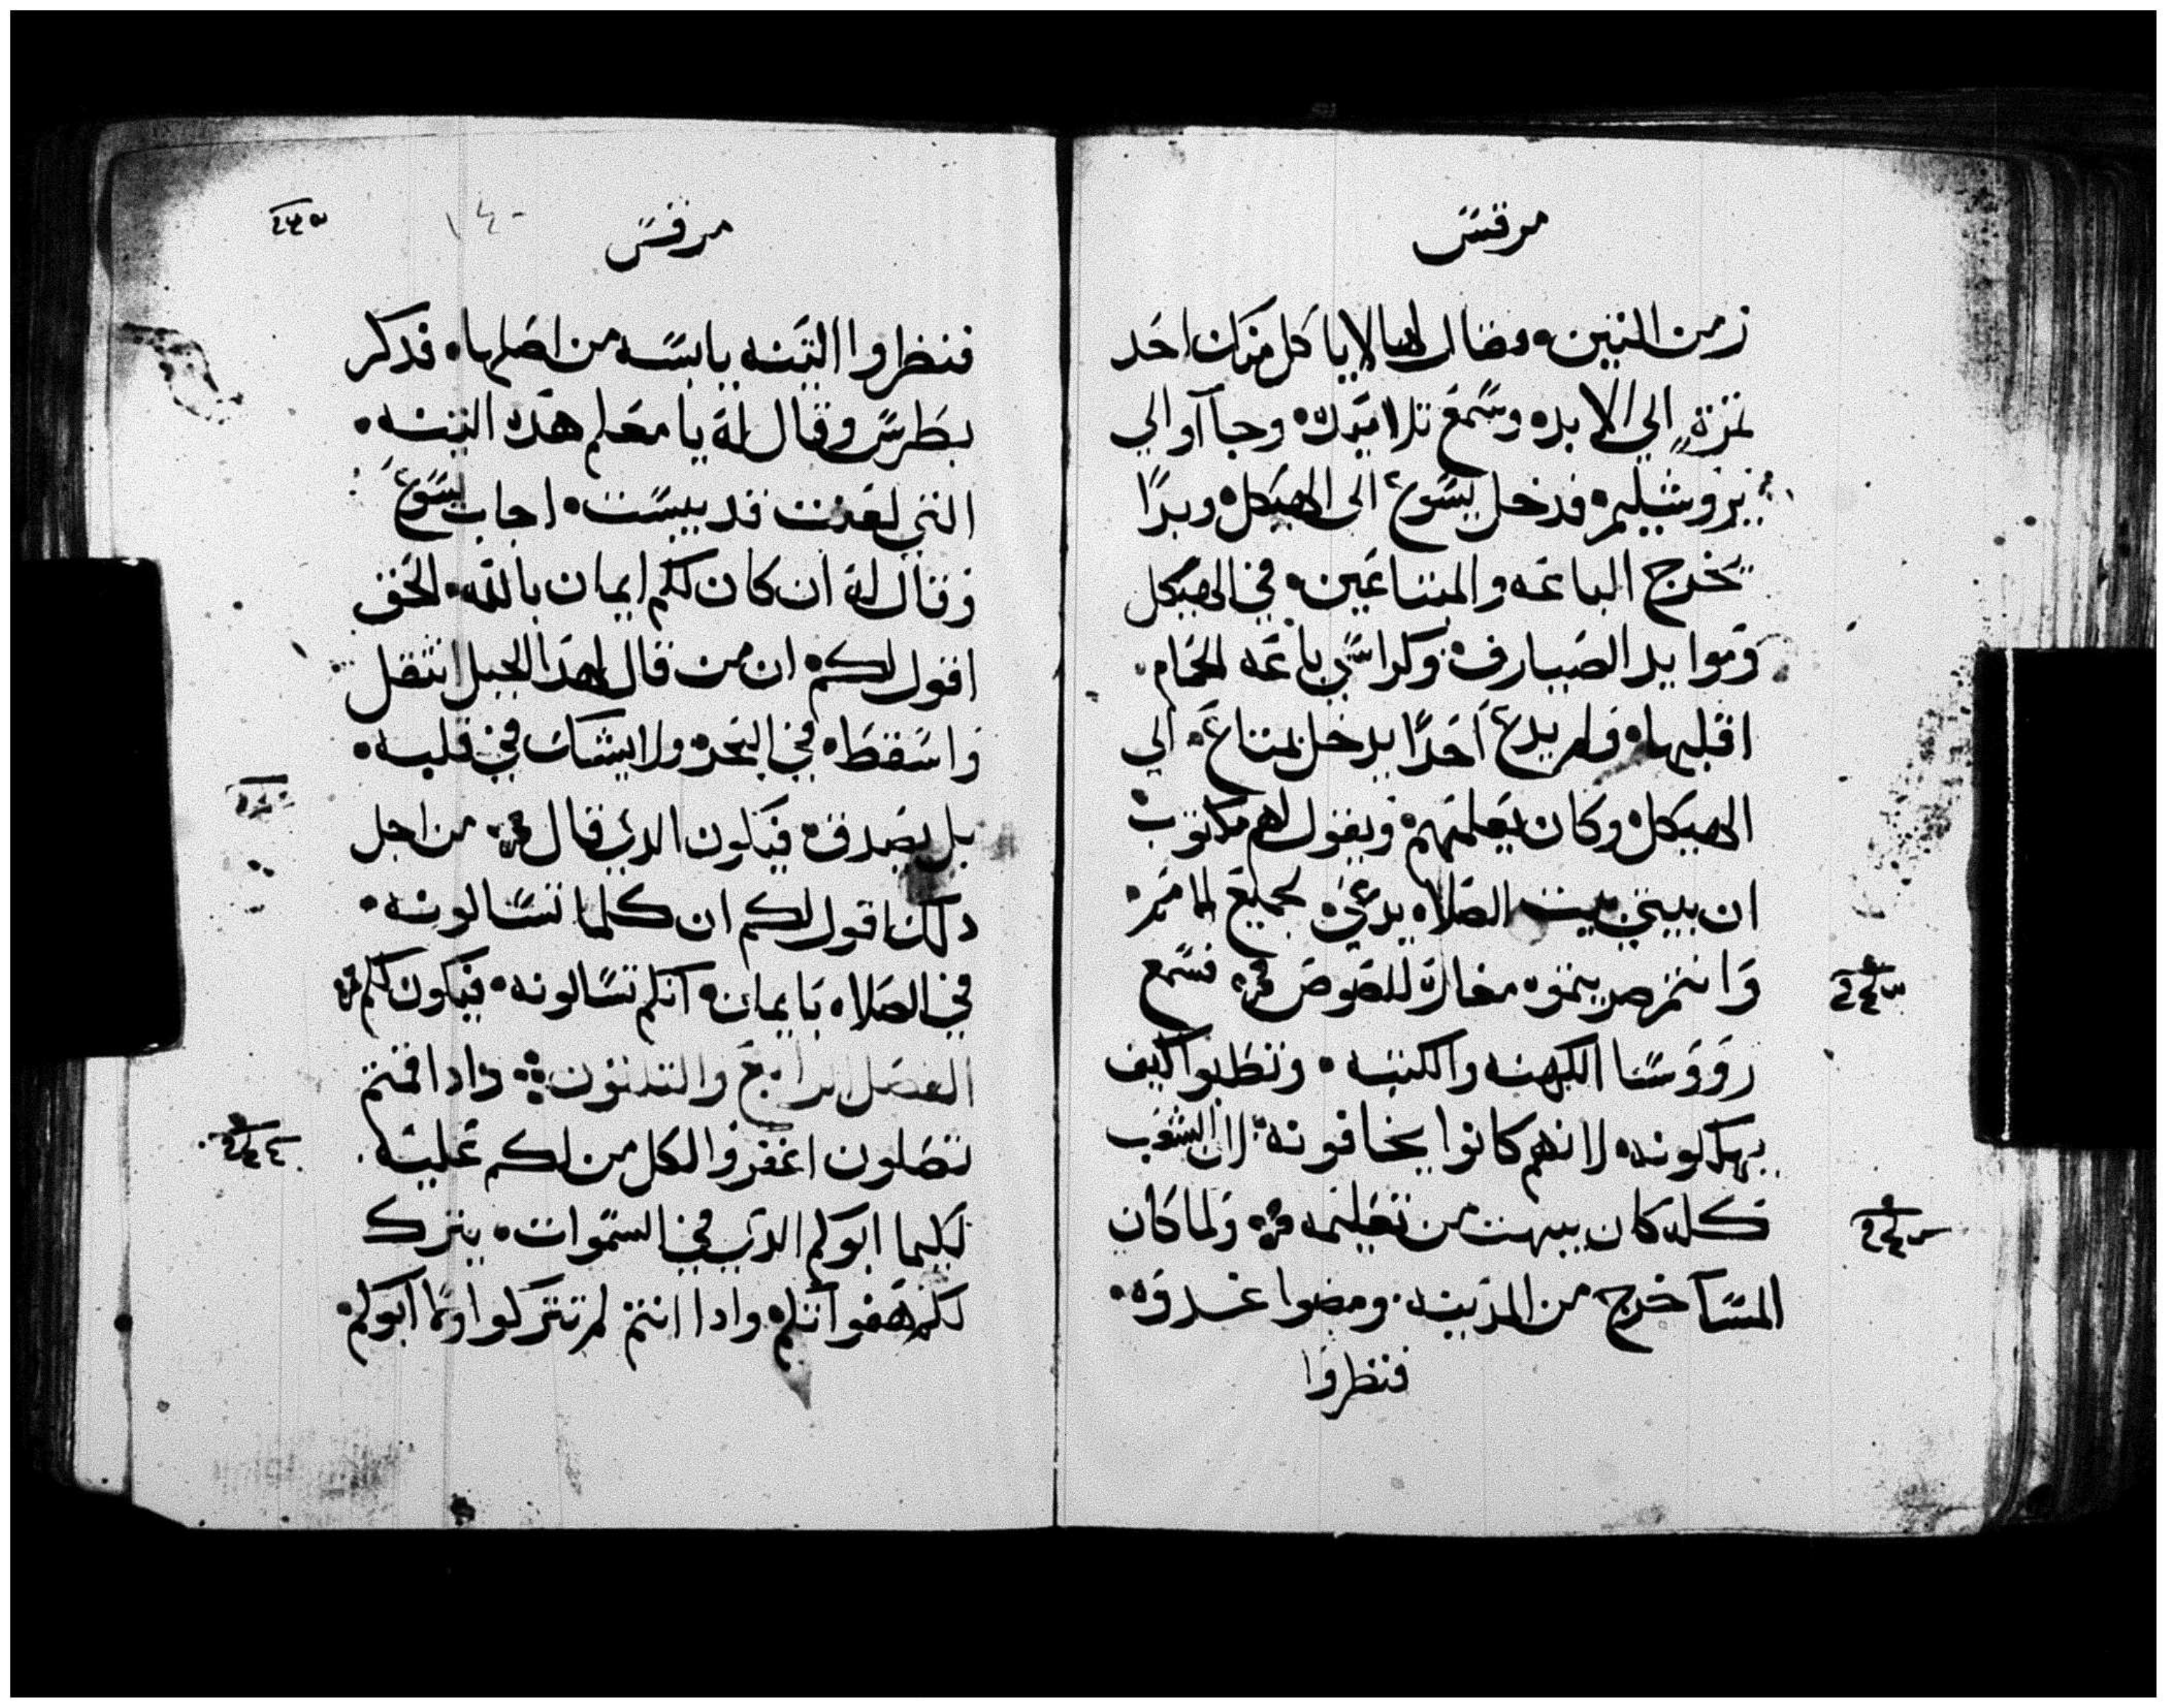 مرقس
زمن التين. وقال لها لا ياكل منك احد
ثمرة الي الابد. وسمع تلاميده. وجاآوا الي
يروشليم. فدخل يسوع الى الهيكل. وبدا
يخرج الباعه والمبتاعين. في الهيكل
وموايد الصيارف. وكراسي باعه الحمام.
اقلبها. ولم يدع احدًا يدخل بمتاع. الي
الهيكل. وكان يعلمهم. ويقول لهم مكتوب
ان بيتي بيت الصلاه يدعى. لجميع الامم.
وانتم صيرتموه مغارة للصوص. فسمع
رووسا الكهنه والكتبه. وتطلبوا كيف
يهلكونه. لانهم كانوا يخافونه. لان الشعب
كله كان يبهت من تعليمه. ولما كان
المسآ خرج من المدينه. ومضوا غدوه.
فنظروا
٢٤٣
مرقس
فنظروا التينه يابسه من اصلها. فدكر
بطرس وقال له يا معلم هده التينه.
التي لعنت قد يبست. اجاب يسوع
وقال له ان كان لكم ايمان بالله. الحق
اقول لكم. ان من قال لهدا الجبل انتقل
واسقط. في البحر. ولا يشك في قلبه.
بل يصدق. فيكون الدي قال. من اجل
دلك اقول لكم ان كلما تسالونه.
في الصلاه بايمان. انكم تسالونه. فيكون لكم
الفصل الرابع والتلتون وادا قمتم
تصلون اغفروا لكل من لكم عليه.
لكيما ابوكم الدي في السموات. يترك
لكم هفواتكم. وادا انتم لم تتركوا ولا ابوكم.
٢٤٤